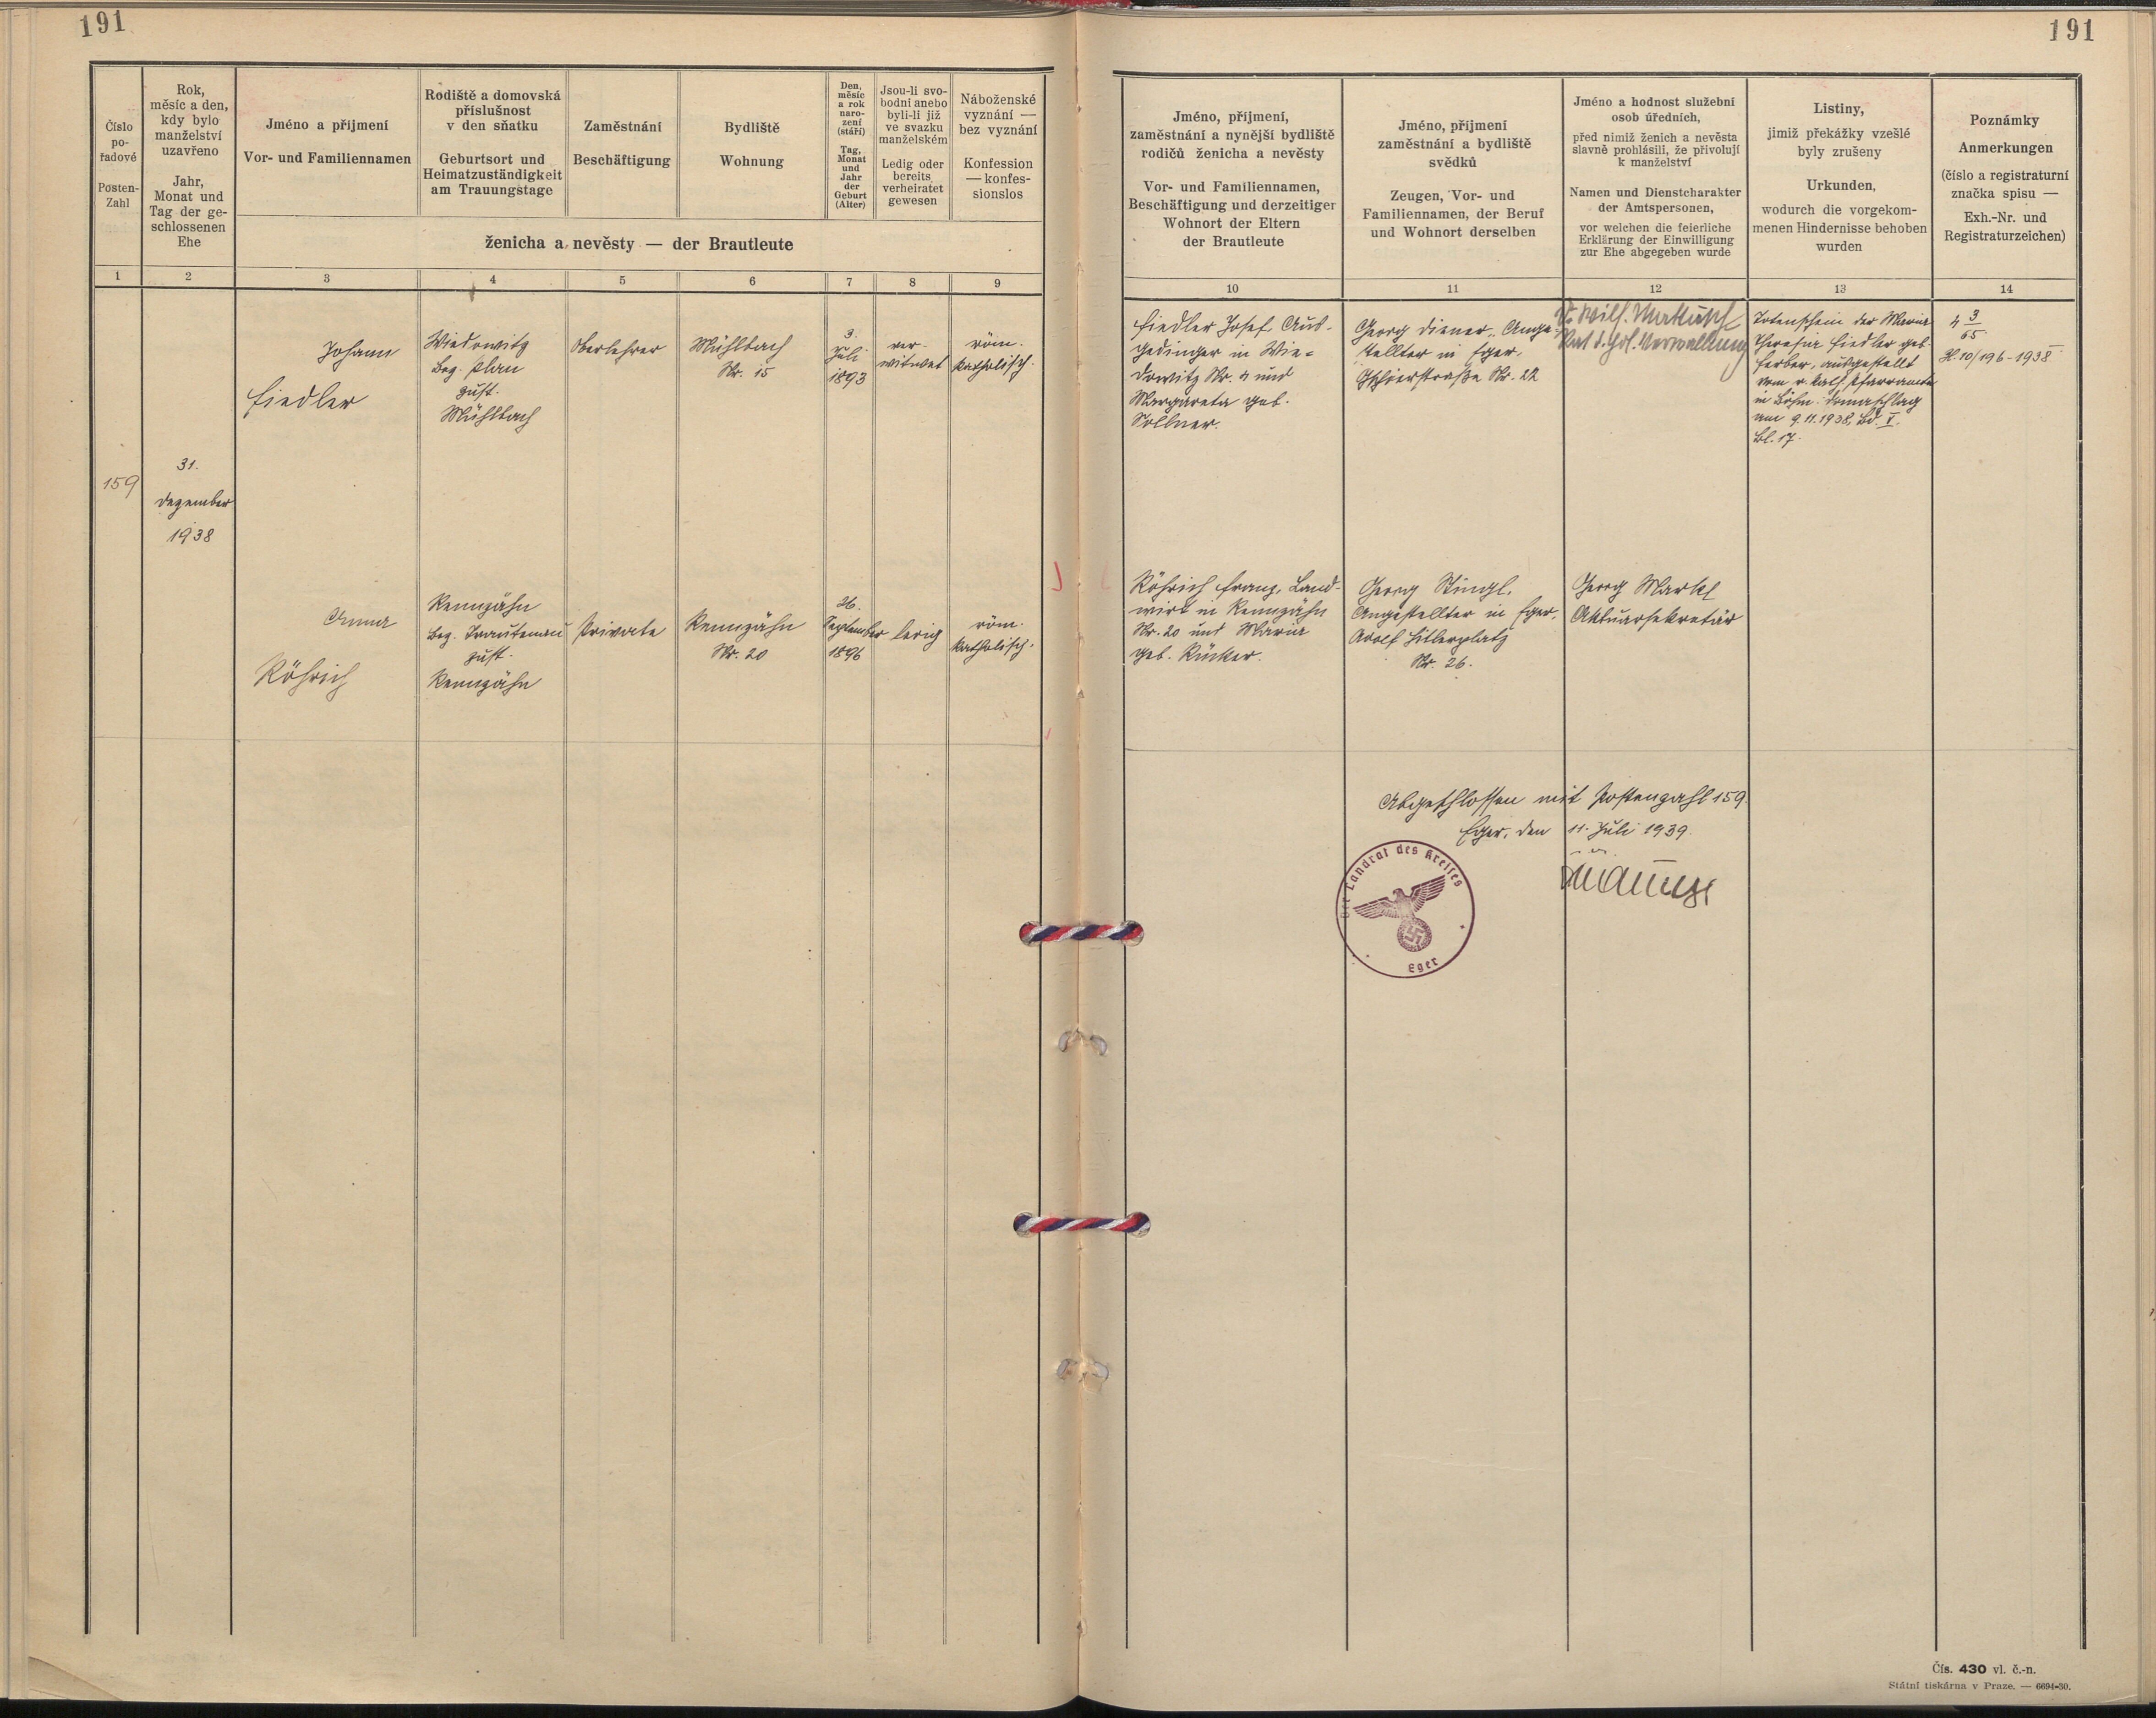 191
191
Číslo
po-
řadové
Posten-
Zahl
Rok,
měsíc a den,
kdy bylo
manželství
uzavřeno
Jahr,
Monat und
Tag der ge-
schlossenen
Ehe
Jméno a příjmení
Vor- und Familiennamen
Rodiště a domovská
příslušnost
v den sňatku
Geburtsort und
Heimatzuständigkeit
am Trauungstage
Zaměstnání
Beschäftigung
Bydliště
Wohnung
Den,
měsíc
a rok
naro-
zení
(stáří)
Tag,
Monat
und
Jahr
der
Geburt
(Alter)
Jsou-li svo-
bodni anebo
byli-li již
ve svazku
manželském
Ledig oder
bereits
verheiratet
gewesen
Náboženské
vyznání —
bez vyznání
Konfession
— konfes-
sionslos
ženicha a nevěsty — der Brautleute
1 2 3 4 5 6 7 8 9
Jméno, příjmení,
zaměstnání a nynější bydliště
rodičů ženicha a nevěsty
Vor- und Familiennamen,
Beschäftigung und derzeitiger
Wohnort der Eltern
der Brautleute
Jméno, příjmení
zaměstnání a bydliště
svědků
Zeugen, Vor- und
Familiennamen, der Beruf
und Wohnort derselben
Jméno a hodnost služební
osob úředních,
před nimiž ženich a nevěsta
slavně prohlásili, že přivolují
k manželství
Namen und Dienstcharakter
der Amtspersonen,
vor welchen die feierliche
Erklärung der Einwilligung
zur Ehe abgegeben wurde
Listiny,
jimiž překážky vzešlé
byly zrušeny
Urkunden,
wodurch die vorgekom-
menen Hindernisse behoben
wurden
Poznámky
Anmerkungen
(číslo a registraturní
značka spisu —
Exh.-Nr. und
Registraturzeichen)
10 11 12 13 14
159
31.
Dezember
1938
Johann
Fiedler
Wiedowitz
Bez. Plan
zust.
Mühlbach
Oberlehrer
Mühlbach
Nr. 15
3.
Juli
1893
ver-
witwet
röm.
katholisch.
Fiedler Josef, Aus-
gedinger in Wie-
dowitz Nr. 4 und
Margareta geb.
Sollner.
Georg Diener, Ange-
stellter in Eger,
Nr. 22
Dr. Wilh.
Rat d. pol. Verwaltung
Totenschein der Maria
Theresia Fiedler geb.
Ferber, ausgestellt
vom r. kath. Pfarramte
in Böhm.
am 9.11.1938, Bd. I.
Bl. 17.
4 3
65
Zl. 10/196-1938
Anna
Röhrich
Rennzähn
Bez. Trautenau
zust.
Rennzähn
Private
Rennzähn
Nr. 20
26.
September
1896
ledig
röm.
katholisch.
Röhrich Franz, Land-
wirt in Rennzähn
Nr. 20 und Maria
geb. Rücker.
Georg Stingl,
Angestellter in Eger,
Adolf Hitlerplatz
Nr. 26.
Georg Markl
Aktuarsekretär
Abgeschlossen mit Postenzahl 159.
Eger, den 11. Juli 1939.
Der Landrat des Kreises
Eger
Čís. 430 vl. č.-n.
Státní tiskárna v Praze. — 6694-30.